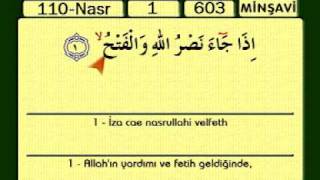 110-Nasr 1 603 MİNŞAVİ
اِذَا جَٓاءَ نَصْرُ اللّٰهِ وَالْفَتْحُۙ ﴿١﴾
1 - İza cae nasrullahi velfeth
1 - Allah'ın yardımı ve fetih geldiğinde,